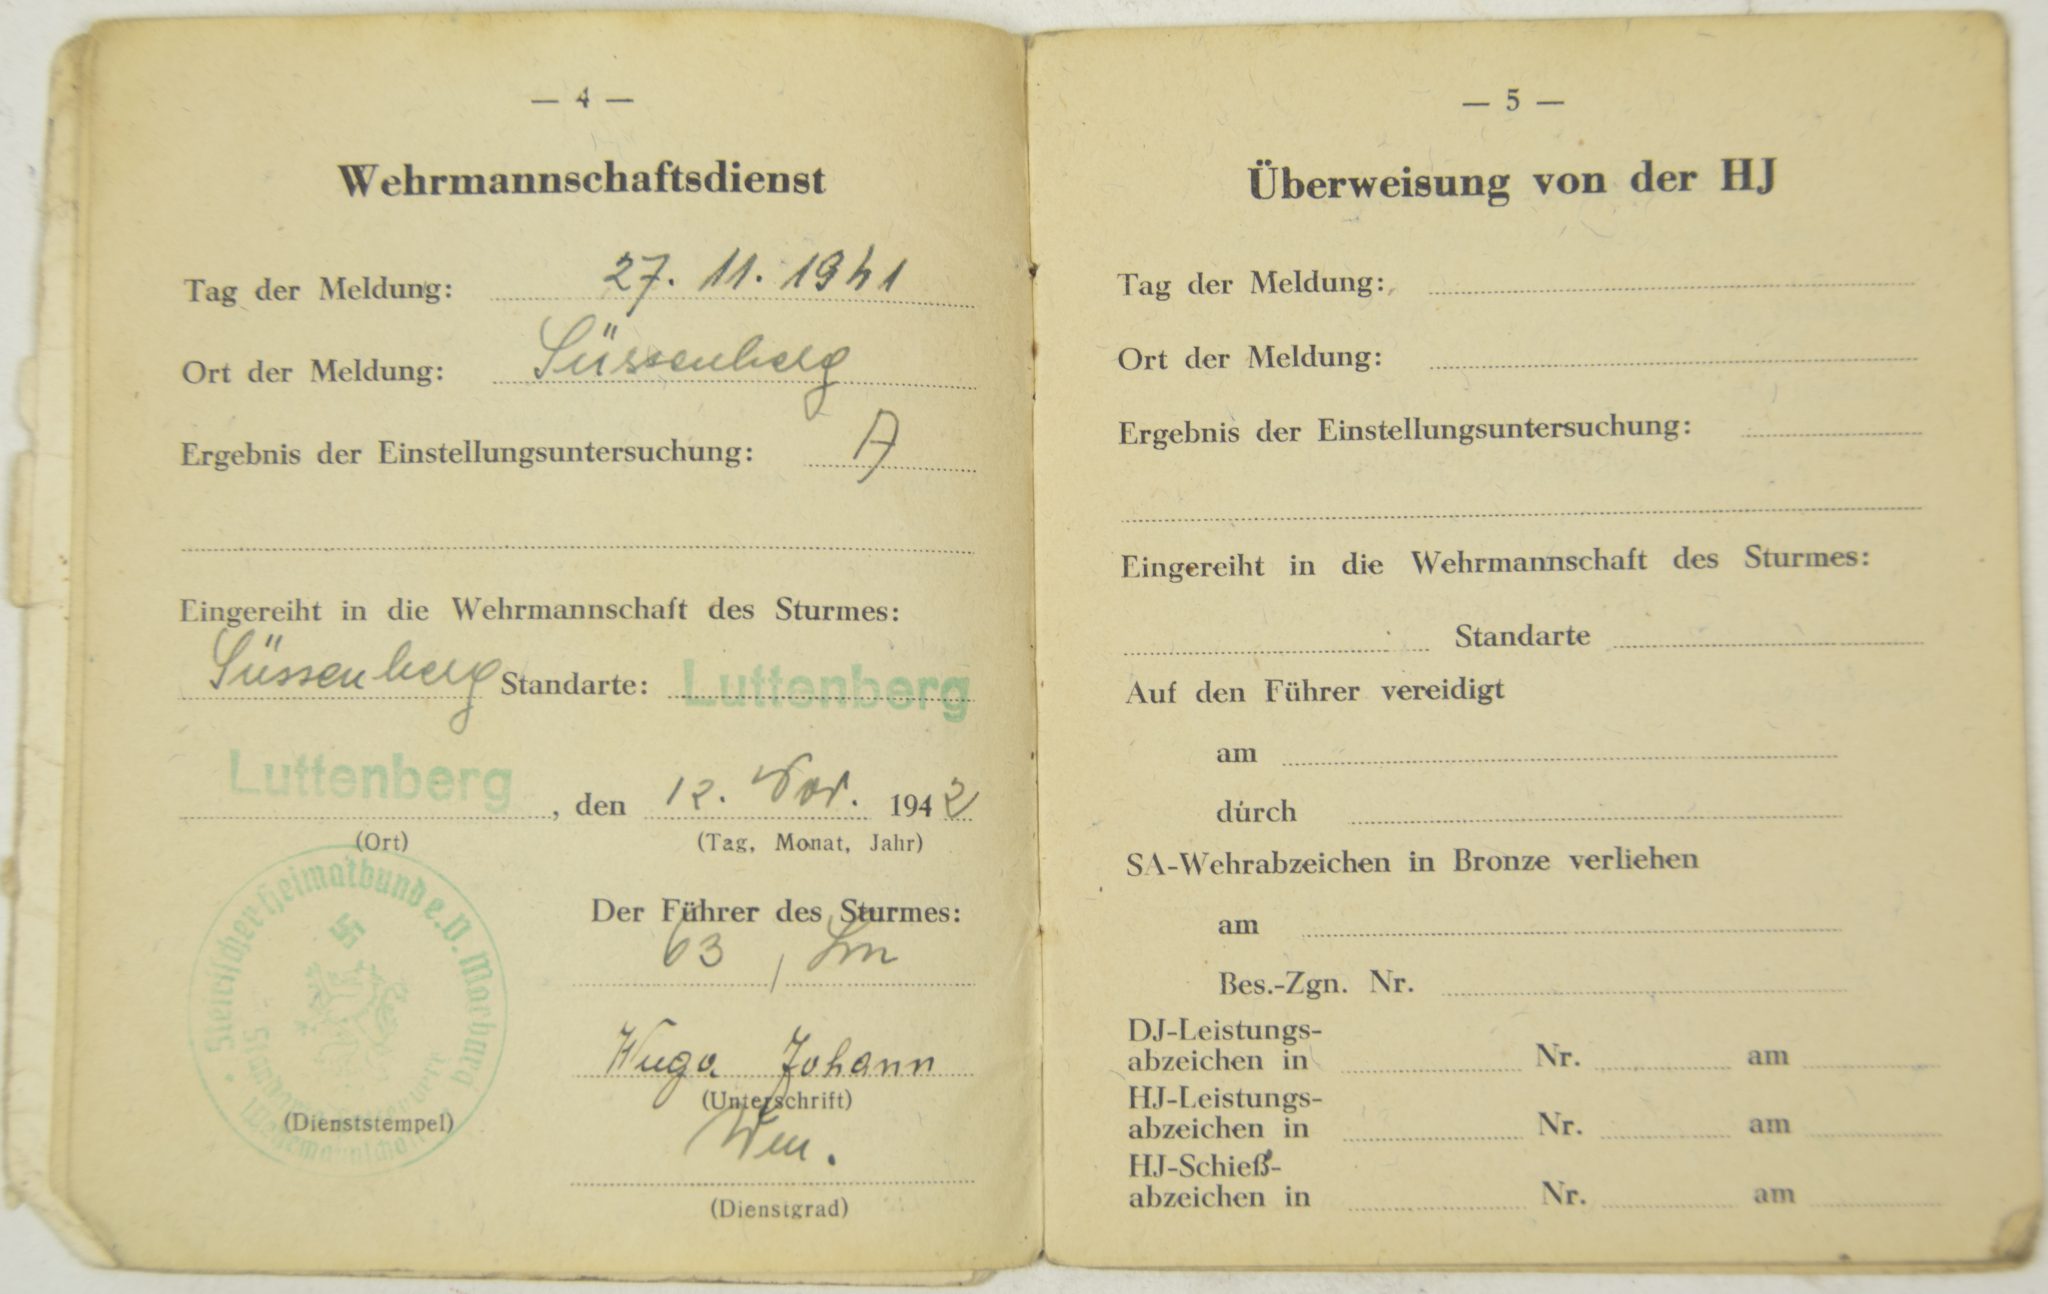 — 4 —
Wehrmannschaftsdienst
Tag der Meldung: 27. 11. 1941
Ort der Meldung: Süssenberg
Ergebnis der Einstellungsuntersuchung: A
Eingereiht in die Wehrmannschaft des Sturmes:
Süssenberg Standarte: Luttenberg
Luttenberg, den 12. Nov. 1942
(Ort) (Tag, Monat, Jahr)
Der Führer des Sturmes:
63 /
Steirischer Heimatbund e. V. Marburg
Johann
(Unterschrift)
(Dienststempel)
(Dienstgrad)
— 5 —
Überweisung von der HJ
Tag der Meldung:
Ort der Meldung:
Ergebnis der Einstellungsuntersuchung:
Eingereiht in die Wehrmannschaft des Sturmes:
Standarte
Auf den Führer vereidigt
am
durch
SA-Wehrabzeichen in Bronze verliehen
am
Bes.-Zgn. Nr.
DJ-Leistungs-
abzeichen in Nr. am
HJ-Leistungs-
abzeichen in Nr. am
HJ-Schieß-
abzeichen in Nr. am